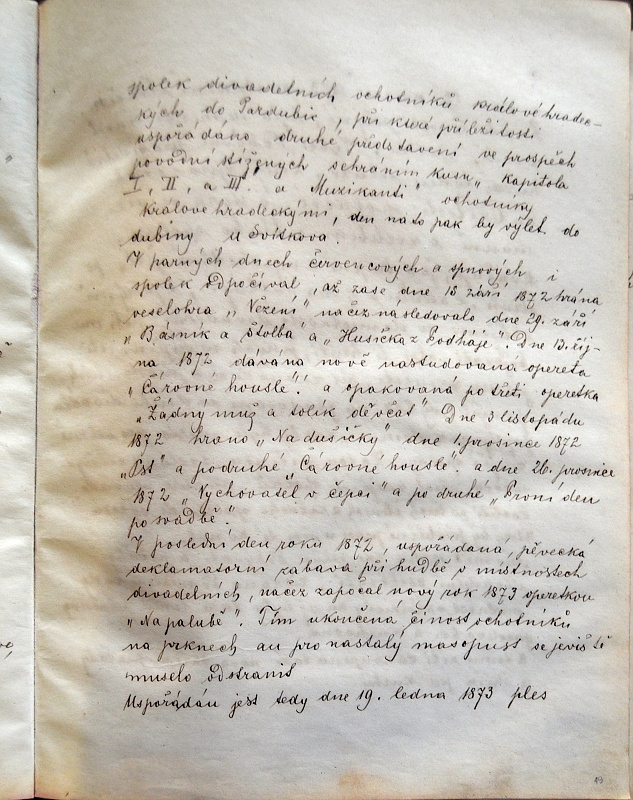 spolek divadelních ochotníků královéhradec-
kých do Pardubic, při které příležitosti
uspořádáno druhé představení ve prospěch
povodní stižených sehráním kusu „Kapitola
I, II, a III. a Muzikanti" ochotníky
Královéhradeckými, den na to pak by výlet do
dubiny u Svítkova.
V parných dnech červencových a srpnových i
spolek odpočíval, až zase dne 15 září 1872 hrána
veselohra „Vězení" načež následovalo dne 29. září
„Básník a Štolba" a „Husička z Podháje". Dne 13. říj-
na 1872 dávána nově nastudovaná opereta
„Čárovné housle". a opakovaná po třetí operetka
„Žádný muž a tolik děvčat" Dne 3 listopadu
1872 hráno „Na dušičky" dne 1. prosince 1872
„Pst" a podruhé „Čárovné housle". a dne 26. prosince
1872 „Vychovatel v čepci" a po druhé „První den
po svadbě".
V poslední den roku 1872, uspořádaná, pěvecká
deklamatorní zábava při hudbě v místnostech
divadelních, načež započal nový rok 1873 operetkou
„Na palubě". Tím ukončená činost ochotníků
na prknech an pro nastalý masopust se jeviště
muselo odstranit
Uspořádán jest tedy dne 19. ledna 1873 ples